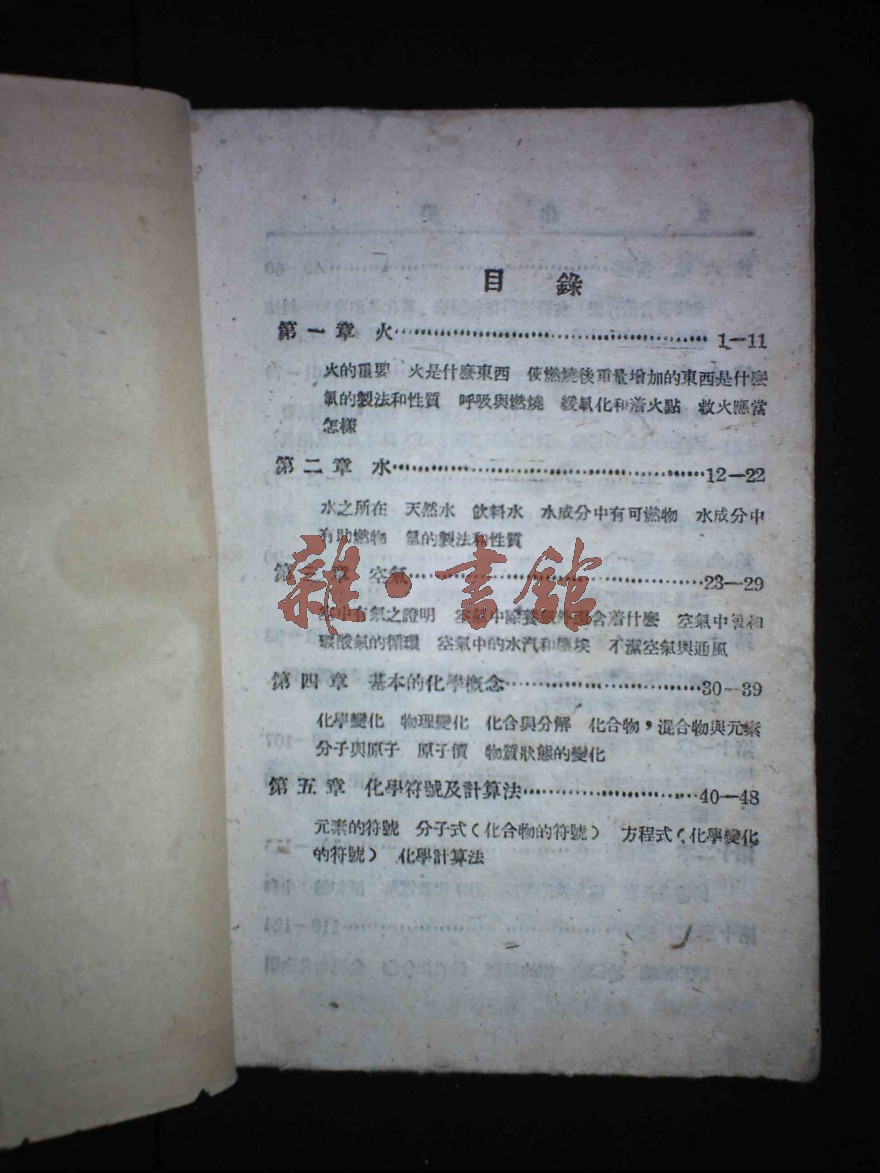 目 錄
第一章 火 1—11
火的重要 火是什麽東西 使燃燒後重量增加的東西是什麽
氧的製法和性質 呼吸與燃燒 緩氧化和着火點 救火應當
怎樣
第二章 水 12—22
水之所在 天然水 飲料水 水成分中有可燃物 水成分中
有助燃物 氫的製法和性質
第三章 空氣 23—29
中有氣之證明 空氣中除養氣外還含着什麽 空氣中和
碳酸氣的循環 空氣中的水汽和塵埃 不潔空氣與通風
第四章 基本的化學概念 30—39
化學變化 物理變化 化合與分解 化合物，混合物與元素
分子與原子 原子價 物質狀態的變化
第五章 化學符號及計算法 40—48
元素的符號 分子式（化合物的符號） 方程式（化學變化
的符號） 化學計算法
雜·書館